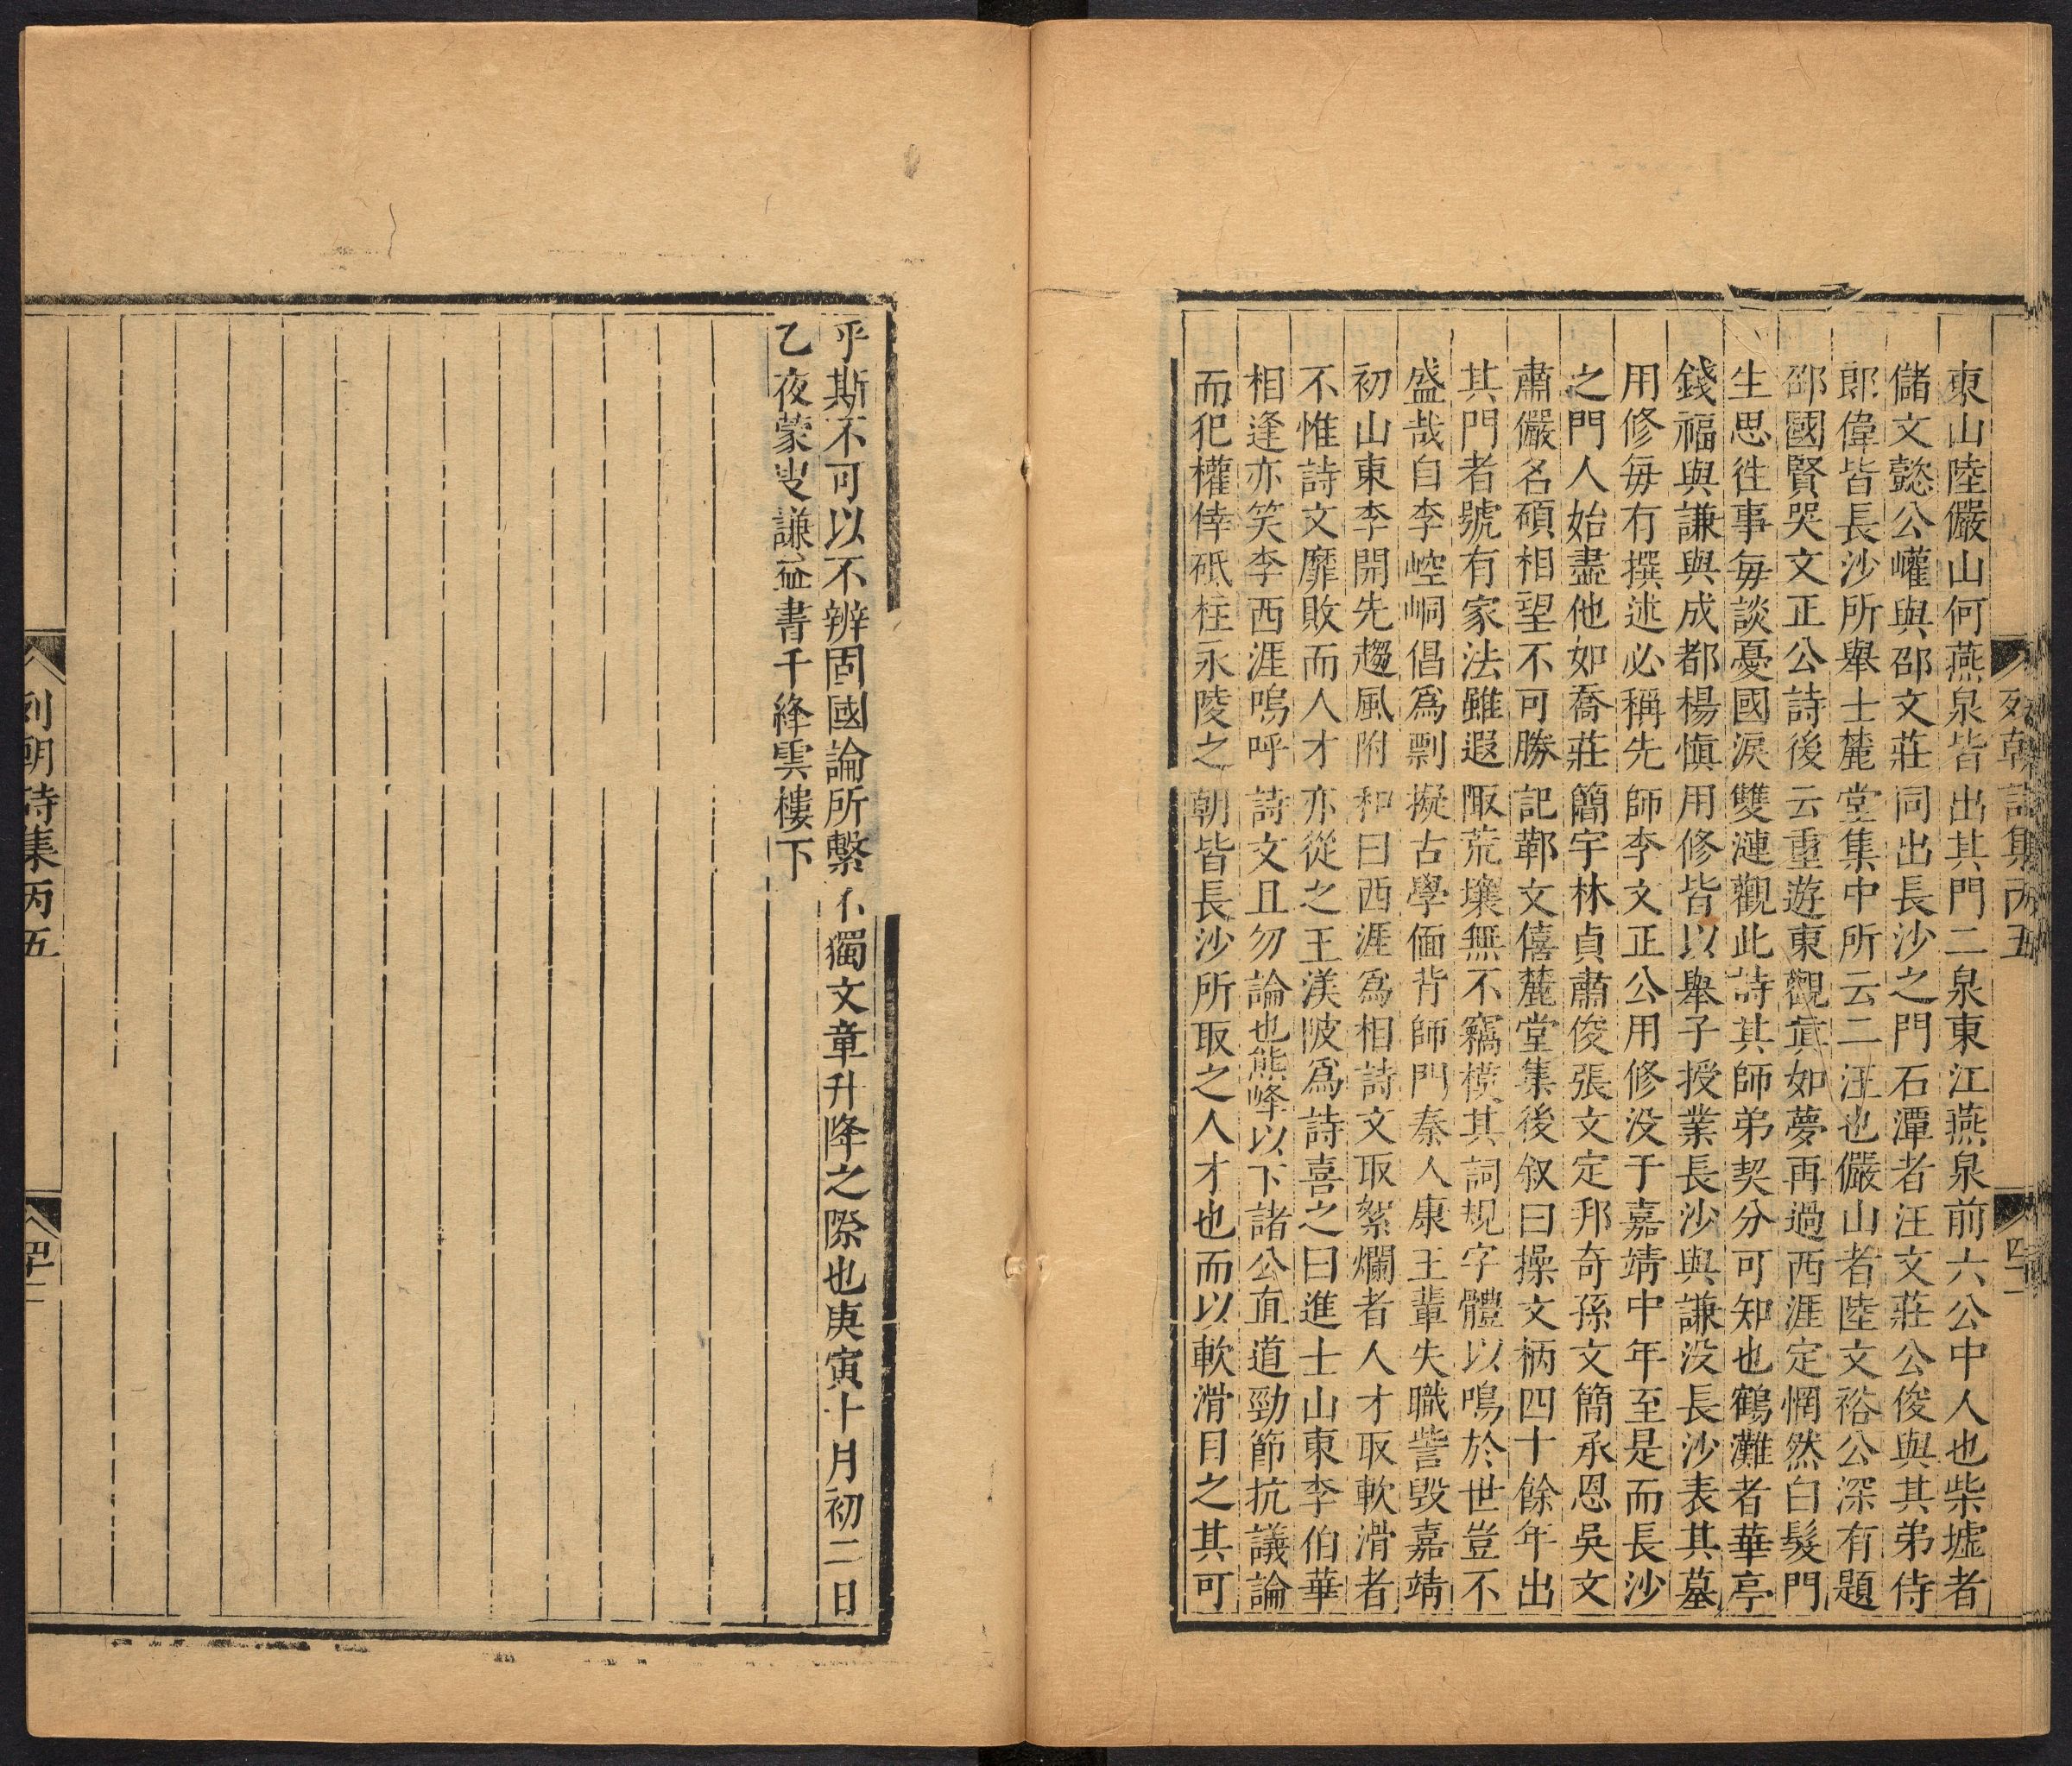 東山陸儼山何燕泉皆出其門二泉東江燕泉前六公中人也柴墟者
儲文懿公巏與邵文莊同出長沙之門石潭者汪文莊公俊與其弟侍
郎偉皆長沙所舉士麓堂集中所云二汪也儼山者陸文裕公深有題
邵國賢哭文正公詩後云重遊東觀眞如夢再過西涯定惘然白髮門
生思徃事毎談憂國淚雙漣觀此詩其師弟契分可知也鶴灘者華亭
錢福與謙與成都楊愼用修皆以舉子授業長沙與謙没長沙表其墓
用修毎有撰述必稱先師李文正公用修没于嘉靖中年至是而長沙
之門人始盡他如喬莊簡宇林貞肅俊張文定邦奇孫文簡承恩吳文
肅儼名碩相望不可勝記鄿文僖麓堂集後叙曰操文柄四十餘年出
其門者號有家法雖遐陬荒壤無不竊模其詞規字體以鳴於世豈不
盛哉自李崆峒倡爲剽擬古學偭背師門秦人康王輩失職訾毀嘉靖
初山東李開先趨風附和曰西涯爲相詩文取絮爛者人才取軟滑者
不惟詩文靡敗而人才亦從之王渼陂爲詩喜之曰進士山東李伯華
相逢亦笑李西涯嗚呼詩文且勿論也熊峰以下諸公直道勁節抗議論
而犯權倖砥柱永陵之朝皆長沙所取之人才也而以軟滑目之其可
列朝詩集丙五
四十一
乎斯不可以不辨固國論所繫不獨文章升降之際也庚寅十月初二日
乙夜蒙叟謙益書于絳雲樓下
列朝詩集丙五